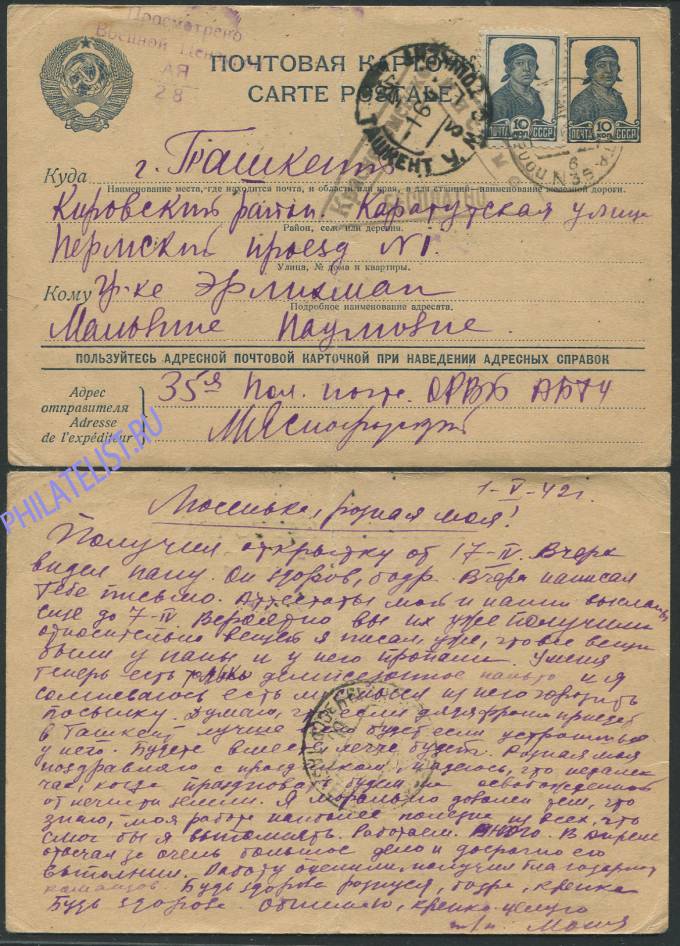 Просмотрено
Военной Цензурой
28
ПОЧТОВАЯ КАРТОЧКА
CARTE POSTALE
ПОЧТА 10 КОП СССР
ПОЧТА 10 КОП СССР
ТАШКЕНТ
Куда г. Ташкент
Наименование места, где находится почта, и области или края, а для станций—наименование железной дороги.
Кировский район Карасуйская улица
Район, село или деревня.
Пермский проезд N1.
Улица, № дома и квартиры.
Кому Гр-ке Эрлихман
Подробное наименование адресата.
Мальвине Наумовне.
ПОЛЬЗУЙТЕСЬ АДРЕСНОЙ ПОЧТОВОЙ КАРТОЧКОЙ ПРИ НАВЕДЕНИИ АДРЕСНЫХ СПРАВОК
Адрес отправителя
Adresse de l'expéditeur
35я Пол. почт. ОРВБ АБТЧ
PHILATELIST.RU
1-V-42г.
родная моя!
Получил открытку от 17-IV. Вчера
видел папу. Он здоров, бодр. Вчера написал
тебе письмо. Аттестаты мой и папин выслан
еще до 7-IV. Вероятно вы их уже получили
относительно вещей я писал уже, что все вещи
были у папы и у него пропали. У меня
теперь есть только демисезонное пальто и я
сомневаюсь есть ли смысл из него городить
посылку. Думаю, что если дядя приедет
в Ташкент лучше будет если устроитесь
у него. Будете вместе, легче будет. Родная моя
поздравляю с праздником, надеюсь, что недалек
час, когда праздновать будем на освобожденной
от нечисти земле. Я морально доволен тем, что
знаю, моя работа наиболее полезна из всех, что
смог бы я выполнять. Работаем много. В апреле
отвечал за очень большое дело и досрочно его
выполнил. Работу оценили, получил благодарность
командов. Будь здорова родная, бодра, крепка
Будь здорова. Обнимаю, крепко целую